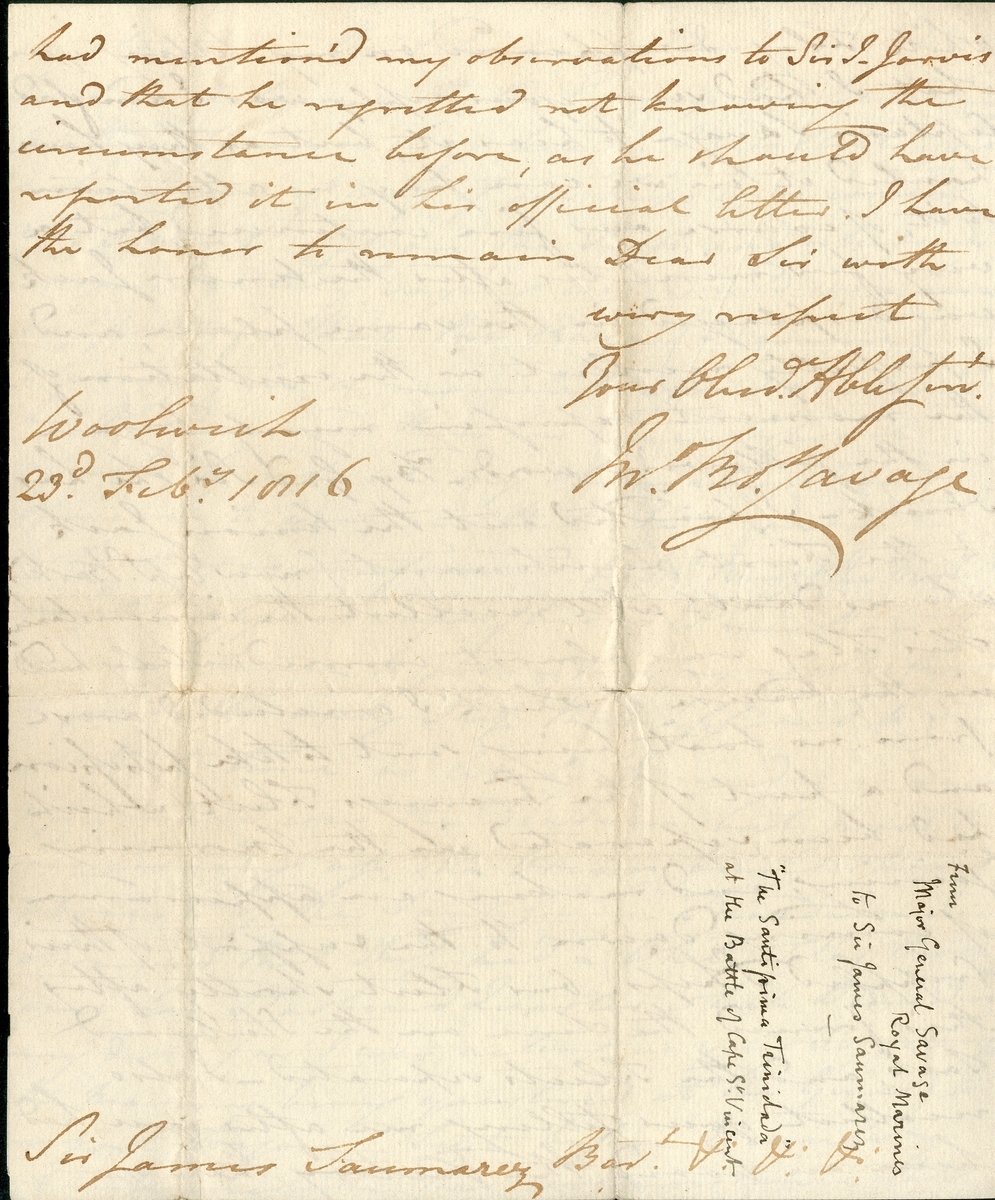 had mention'd my observations to Sir J. Jarvis
and that he regretted not knowing the
circumstance before, as he should have
reported it in his official letter. I have
the honor to remain Dear Sir with
every respect
Your Obed.t H'ble Serv.t
Jn.o Bo. Savage
Woolwich
23.d Feb.y 1816
From
Major General Savage
Royal Marines
to Sir James Saumarez
"The Santissima Trinidada"
at the Battle of Cape St. Vincent.
Sir James Saumarez Bar.t &. &. &.